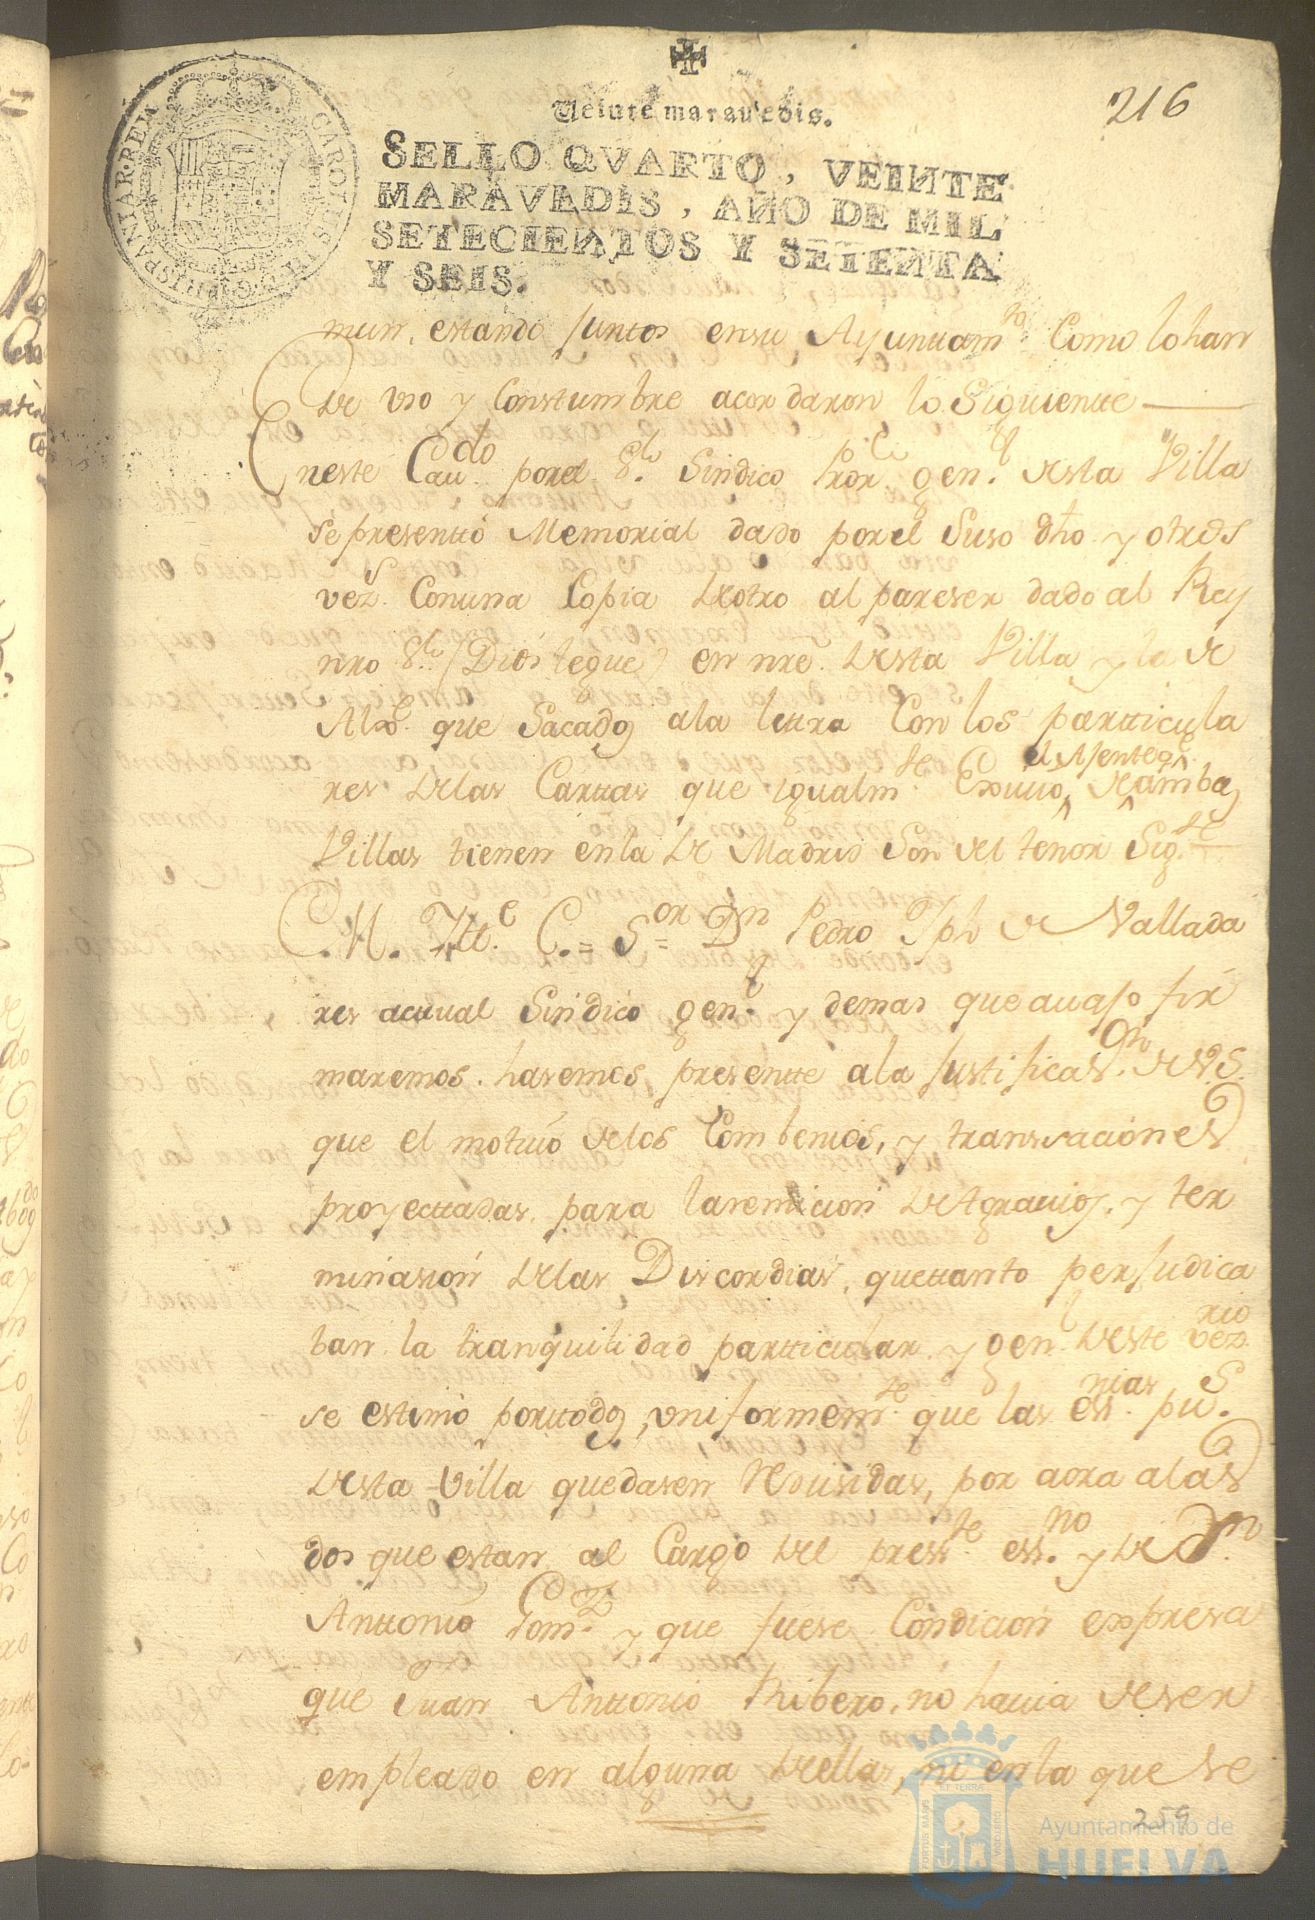 216
Veinte maravedis.
SELLO QVARTO, VEINTE
MARAVEDIS, AÑO DE MIL
SETECIENTOS Y SETENTA
Y SEIS.
CAROLUS III D. G. HISPANIAR. REX
mun, estando Juntos ensu Ayuntamto. Como lohan
De vso y Constumbre acordaron lo Siguiente
Eneste Cavdo. porel Sr. Sindico Pror. genl. desta Villa
se presentó Memorial dado porel Suso dho. y otros
vezs. Conuna Copia de otro al pareser dado al Rey
nro Sr. (Dios legue) en nre. desta Villa y la de
Alxe. que Sacados ala letra Con los particula
res delas Cartas que igualmte. Expuso el Ajente q. de ambas
Villas tienen enla de Madrid Son del tenor Sigte.
C. M. Itte. C. = Sor. = Dn Pedro Jph de Vallada
res actual Sindico genl. y demas que auajo fir
maremos. hasemos presentte ala Justificaon. de V.S.
que el motiuo delos Combenios, y transaciones
proyecttadas para laremicion de Agrauios, y ter
minasion delas Discordias, quettanto perJudica
ban la tranquilidad partticular y genl. deste vezrio.
se estimó porttodos, vniformemte. que las essnias. pus.
desta Villa quedasen Redusidas, por aora alas
dos que estan al Cargo del preste. essno. y de Dn.
Anttonio Gomz. y que fuese Condicion expresa
que Juan Anttonio Ribero, no hauia deser
empleado en alguna dellas, ni enla que se
259
Ayuntamiento de
HUELVA